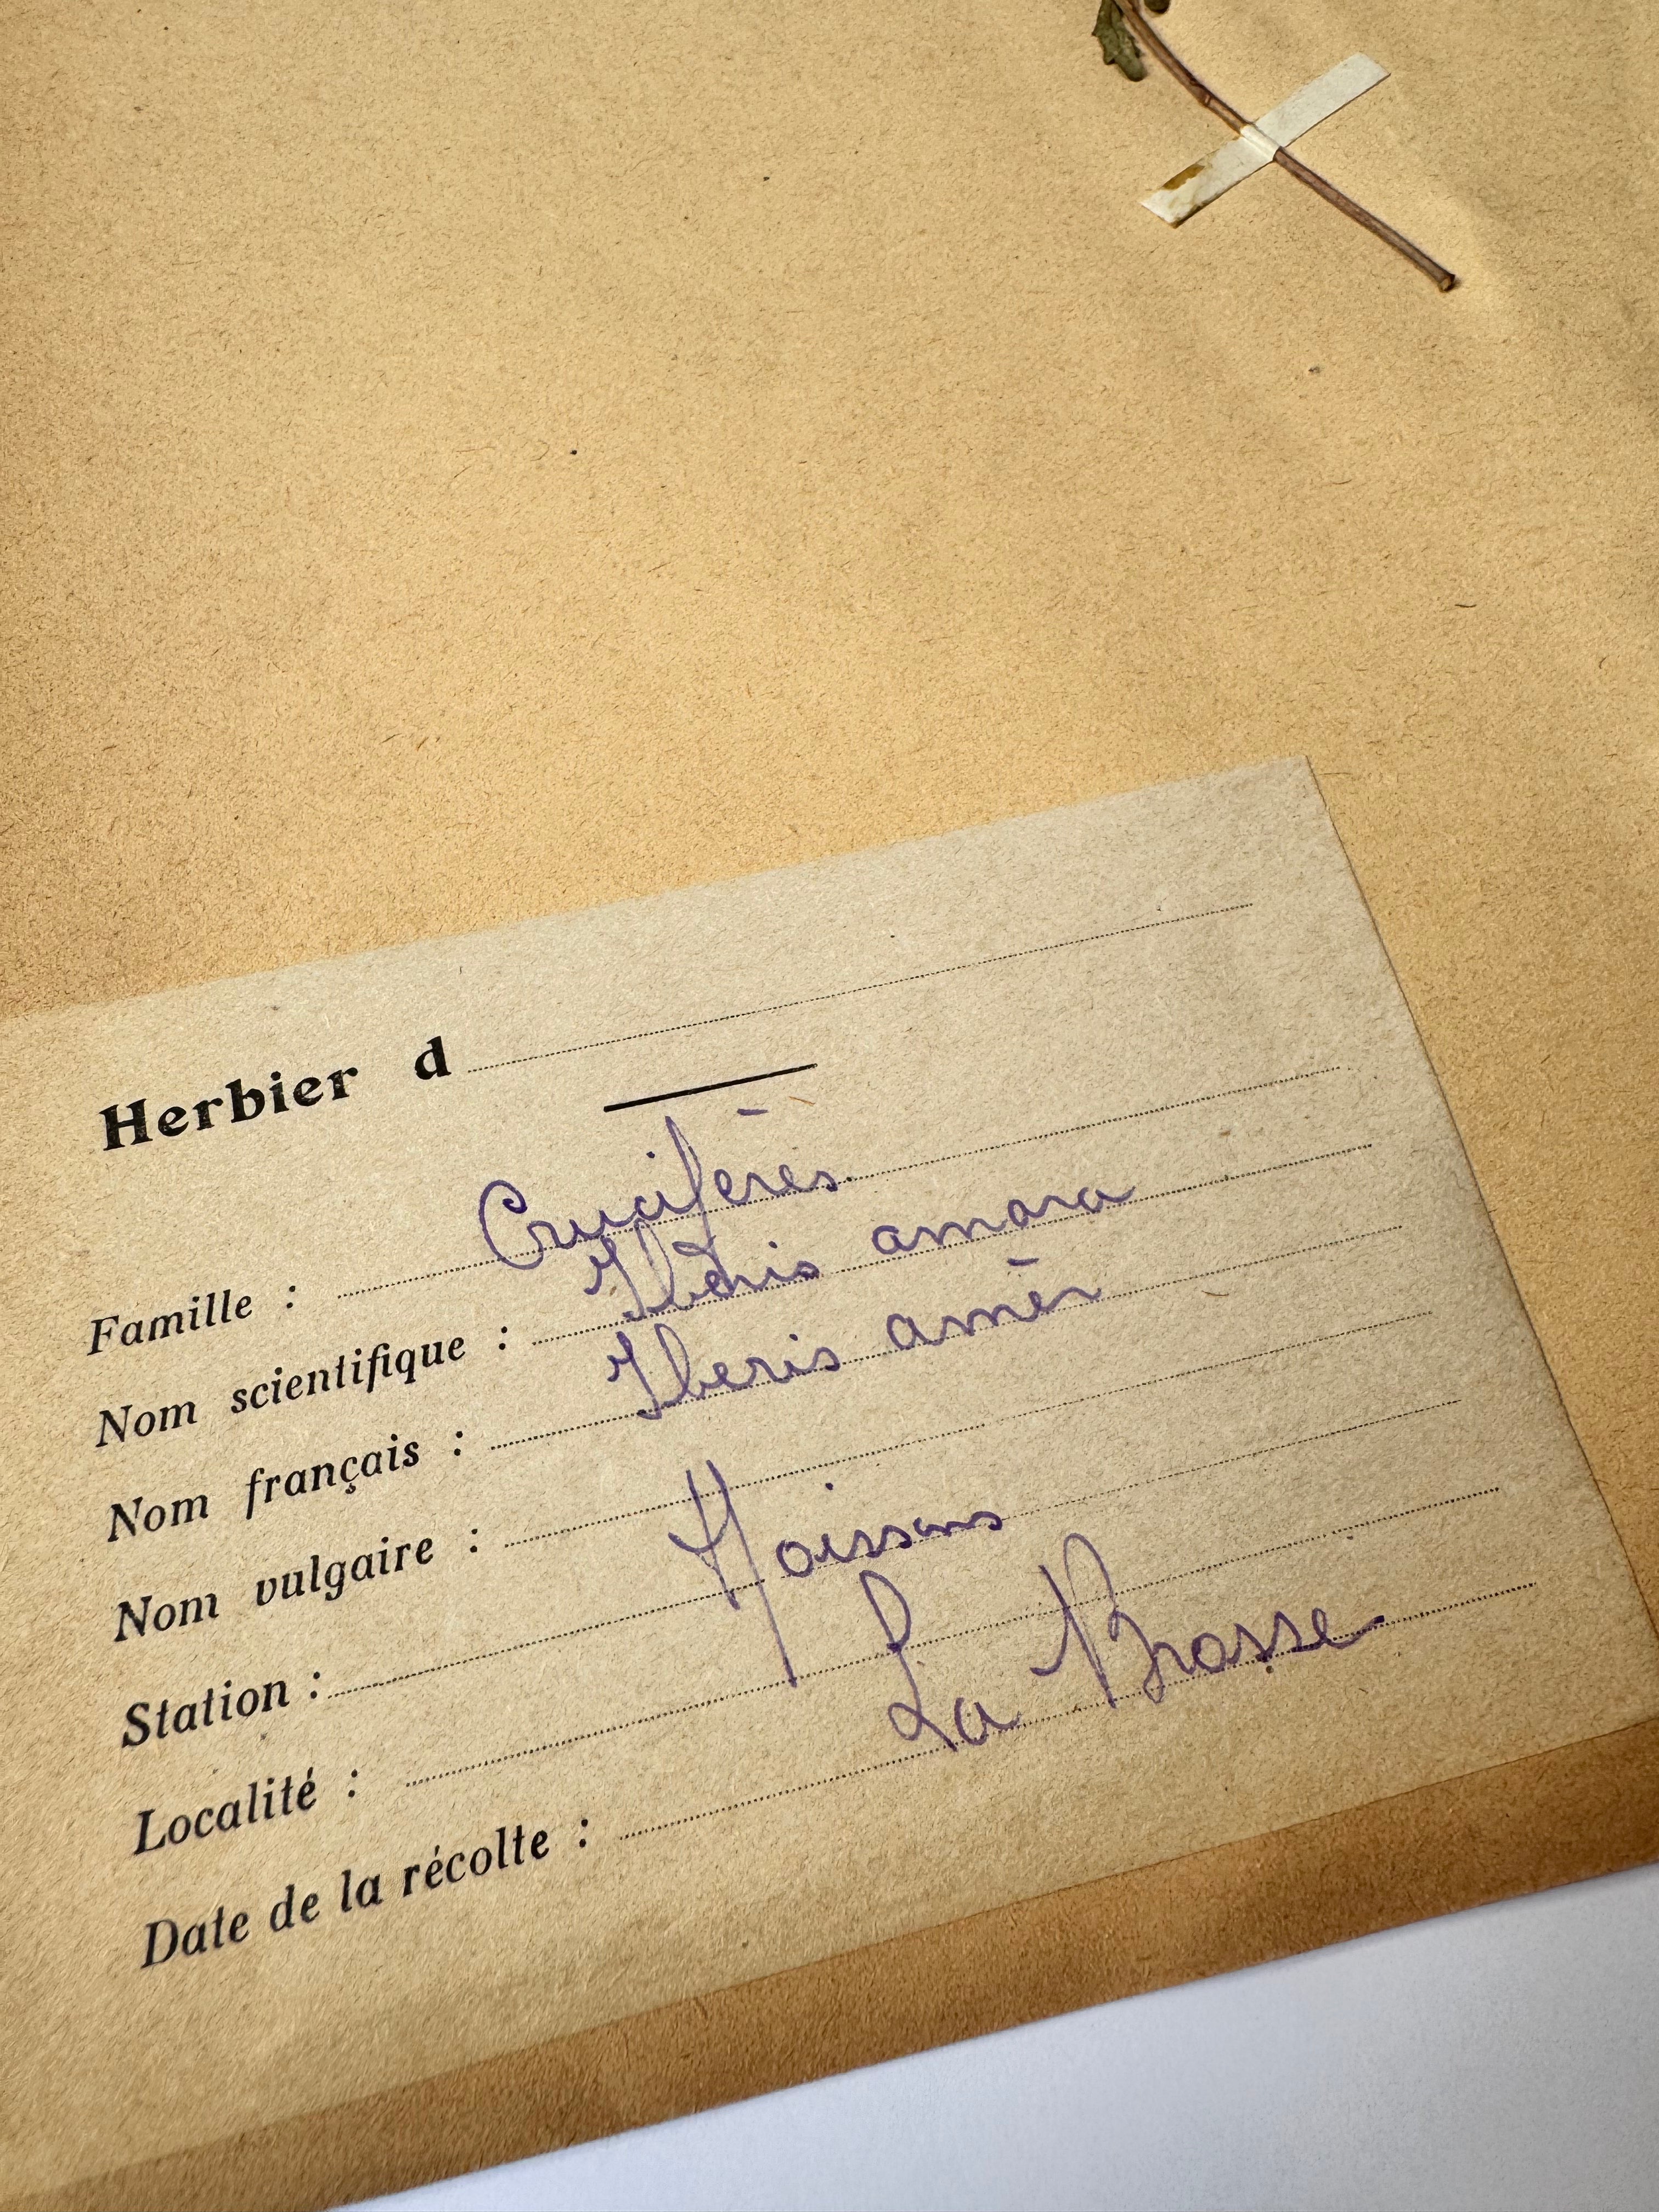 Herbier d
Famille : Crucifères
Nom scientifique : Iberis amara
Nom français : Iberis amèr
Nom vulgaire :
Station : Moissons
Localité :
Date de la récolte : La Brosse